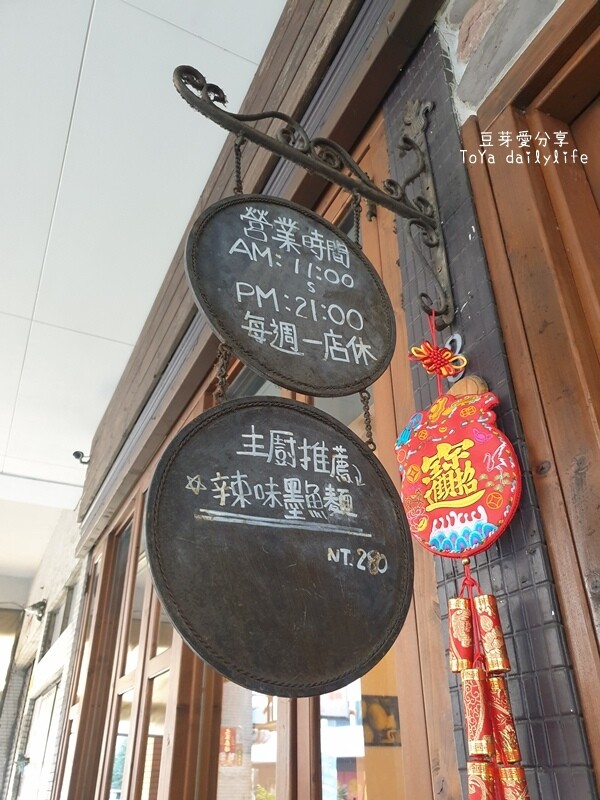 豆芽愛分享
ToYa dailylife
營業時間
AM: 11:00
s
PM:21:00
每週一店休
主廚推薦
☆辣味墨魚麵
NT.280
招財進寶